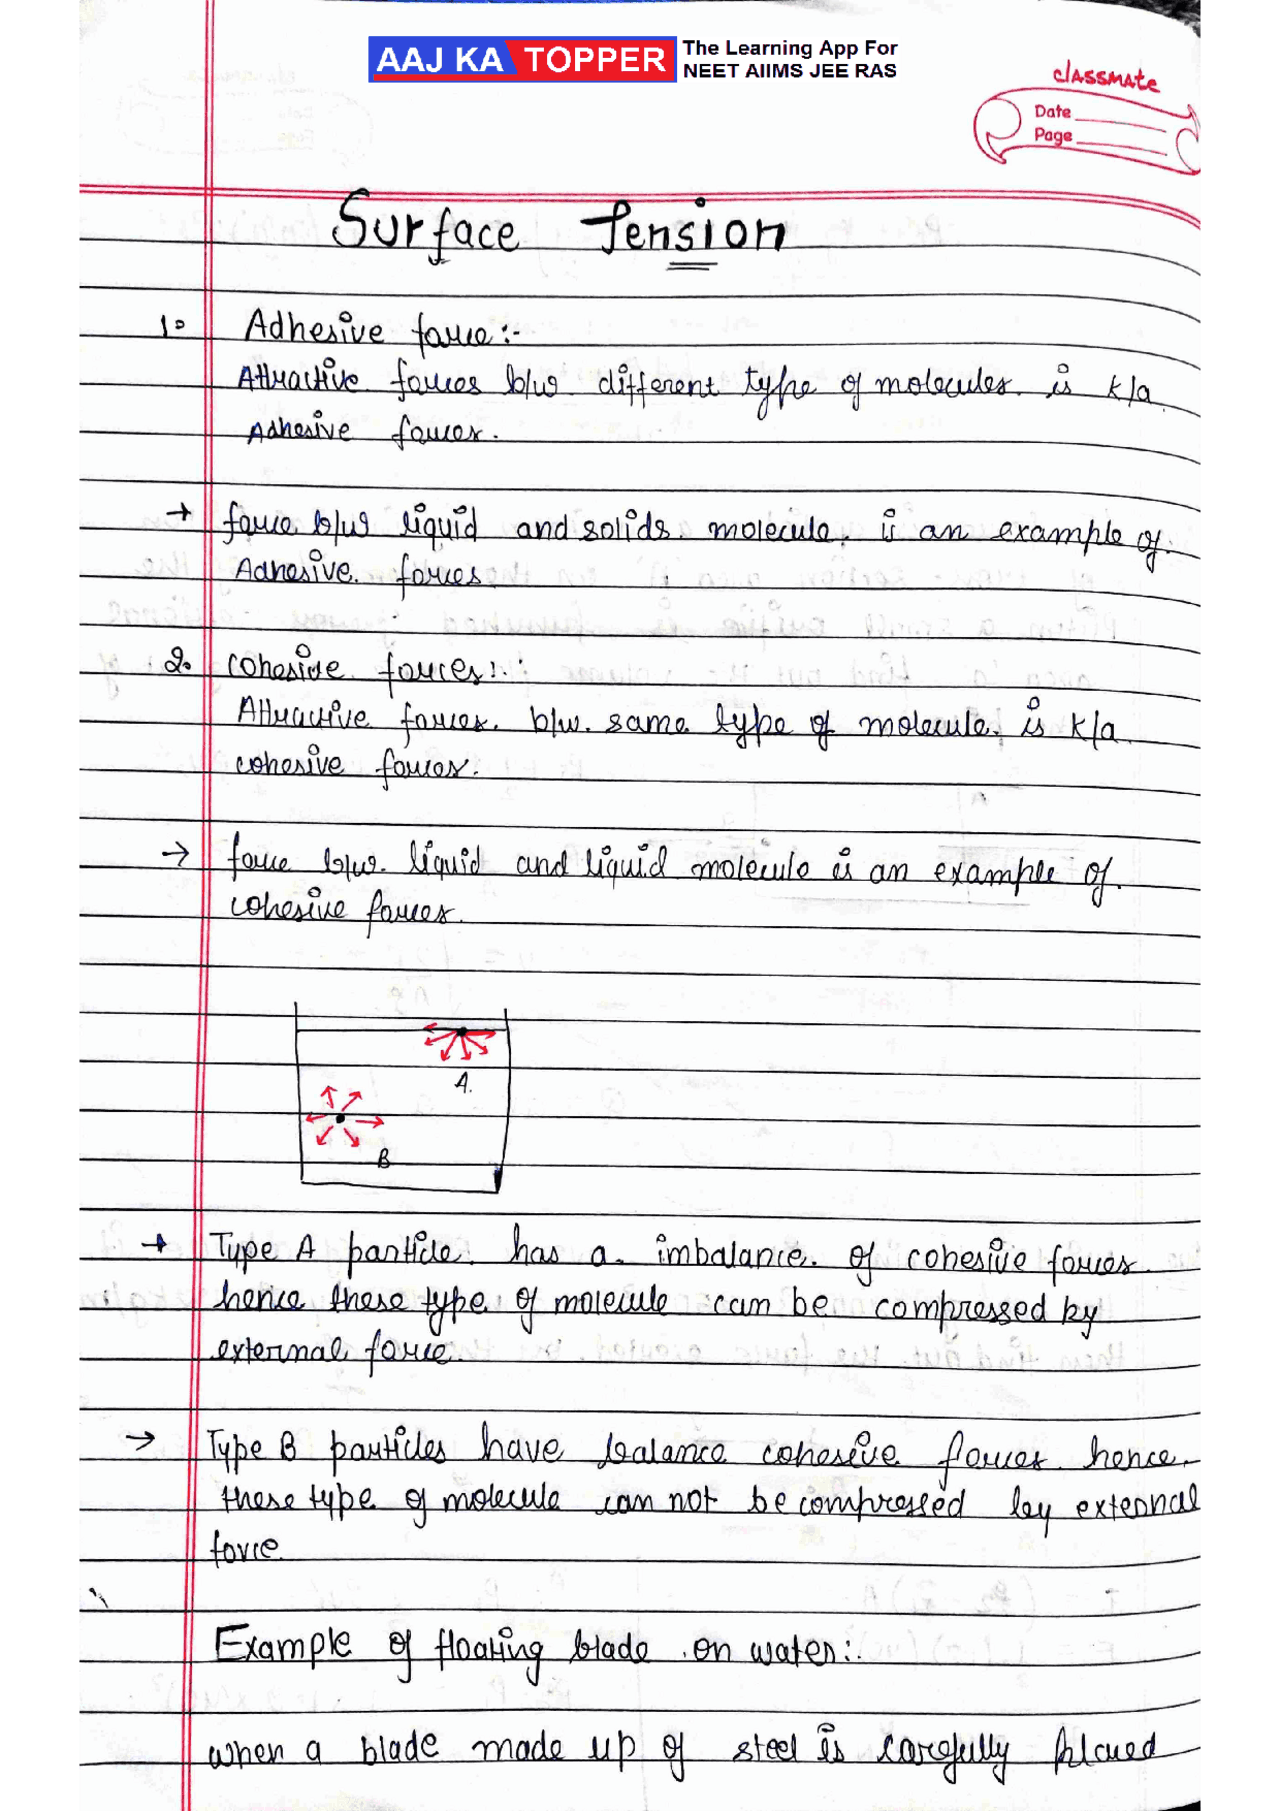 AAJ KA TOPPER The Learning App For
NEET AIIMS JEE RAS
classmate
Date
Page
Surface Tension
1. Adhesive force :-
Attractive forces b/w different type of molecules is k/a
Adhesive forces.
→ force b/w liquid and solids molecule is an example of
Adhesive forces
2. Cohesive forces :
Attractive forces b/w same type of molecule is k/a
cohesive forces.
→ force b/w liquid and liquid molecule is an example of
cohesive forces.
A.
B
→ Type A particle has a imbalance of cohesive forces
hence these type of molecule can be compressed by
external force.
→ Type B particles have balance cohesive forces hence
these type of molecule can not be compressed by external
force.
Example of floating blade on water :
when a blade made up of steel is carefully placed